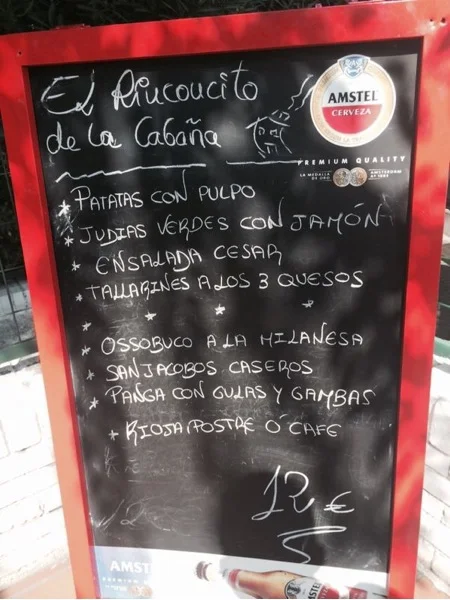 El Riucoucito
de la Cabaña
AMSTEL
CERVEZA
PREMIUM QUALITY
LA MEDALLA
DE ORO
AMSTERDAM
* PATATAS CON PULPO
* JUDIAS VERDES CON JAMÓN
* ENSALADA CESAR
* TALLARINES A LOS 3 QUESOS
* * * *
* OSSOBUCO A LA MILANESA
* SANJACOBOS CASEROS
* PANGA CON GULAS Y GAMBAS
+ RIOJA/POSTRE Ó CAFE
12 €
AMST